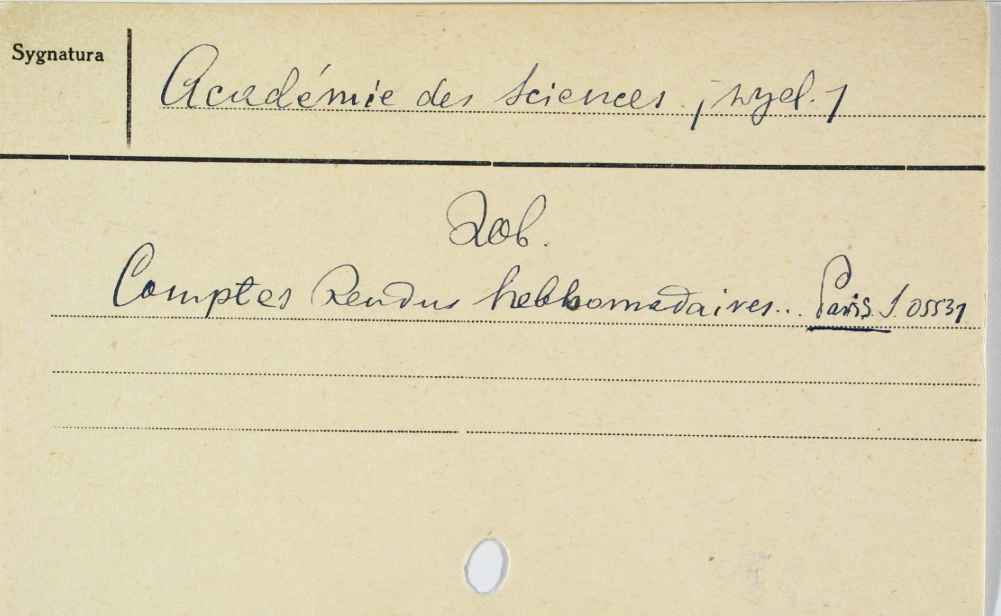 Sygnatura
Académie des Sciences. /wyd./
Zob.
Comptes Rendus hebbomadaires... Paris. S. 05531